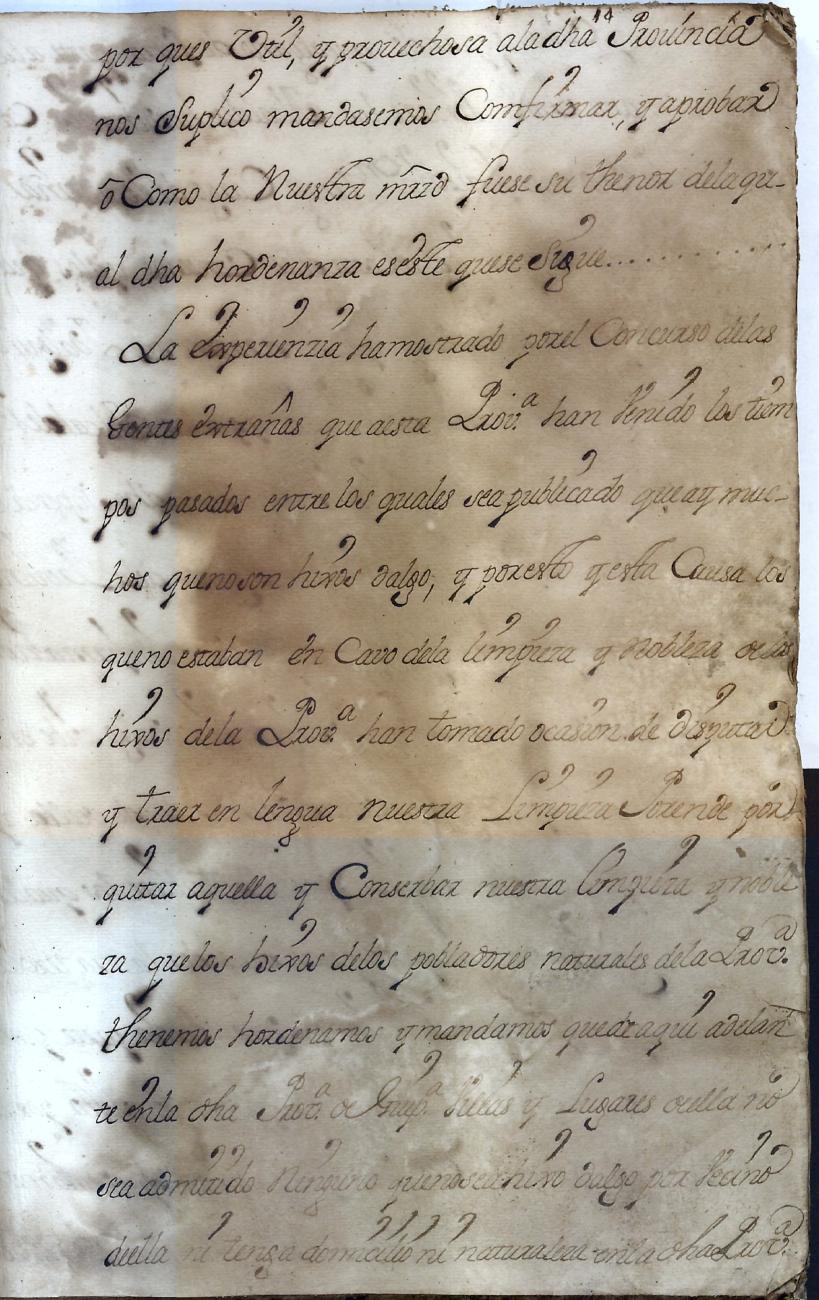 por ques Vtil, y prouechosa ala dha Prouincia
nos Suplico mandasemos Comfirmar, y aprobar
ô Como la Nuestra mrzd fuese su thenor dela qu-
al dha hordenanza es este que se Sigue............
La Experienzia ha mostrado por el Concurso delas
Gentes extrañas que a esta Prov.a han Venido los tiem
pos pasados entre los quales sea publicado que ay muc-
hos que no son hixos dalgo, y por esto y esta Causa los
que no estaban en Cavo dela limpieza y Nobleza de los
hixos dela Prov.a han tomado ocasion de disputar
y traer en lengua Nuestra Limpieza Porende por
quitar aquella y Conserbar nuestra limpieza y noble
za que los hixos delos pobladores naturales dela Prov.a
thenemos hordenamos y mandamos que de aqui adelan
te en la dha Prov.a de Guip.a Villas y Lugares de ella no
sea admitido Ninguno que no sea hixo dalgo por Vecino
de ella ni tenga domicilio ni naturaleza en la dha Prov.a